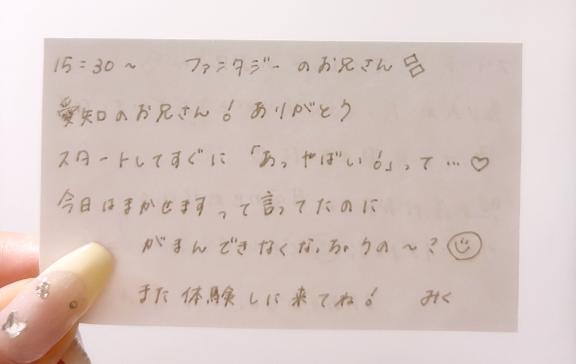 15:30~ ファンタジーのお兄さん
愛知のお兄さん!ありがとう
スタートしてすぐに「あっやばい!」って…♡
今日はまかせますって言ってたのに
がまんできなくなっちゃうの~?
また体験しに来てね! みく